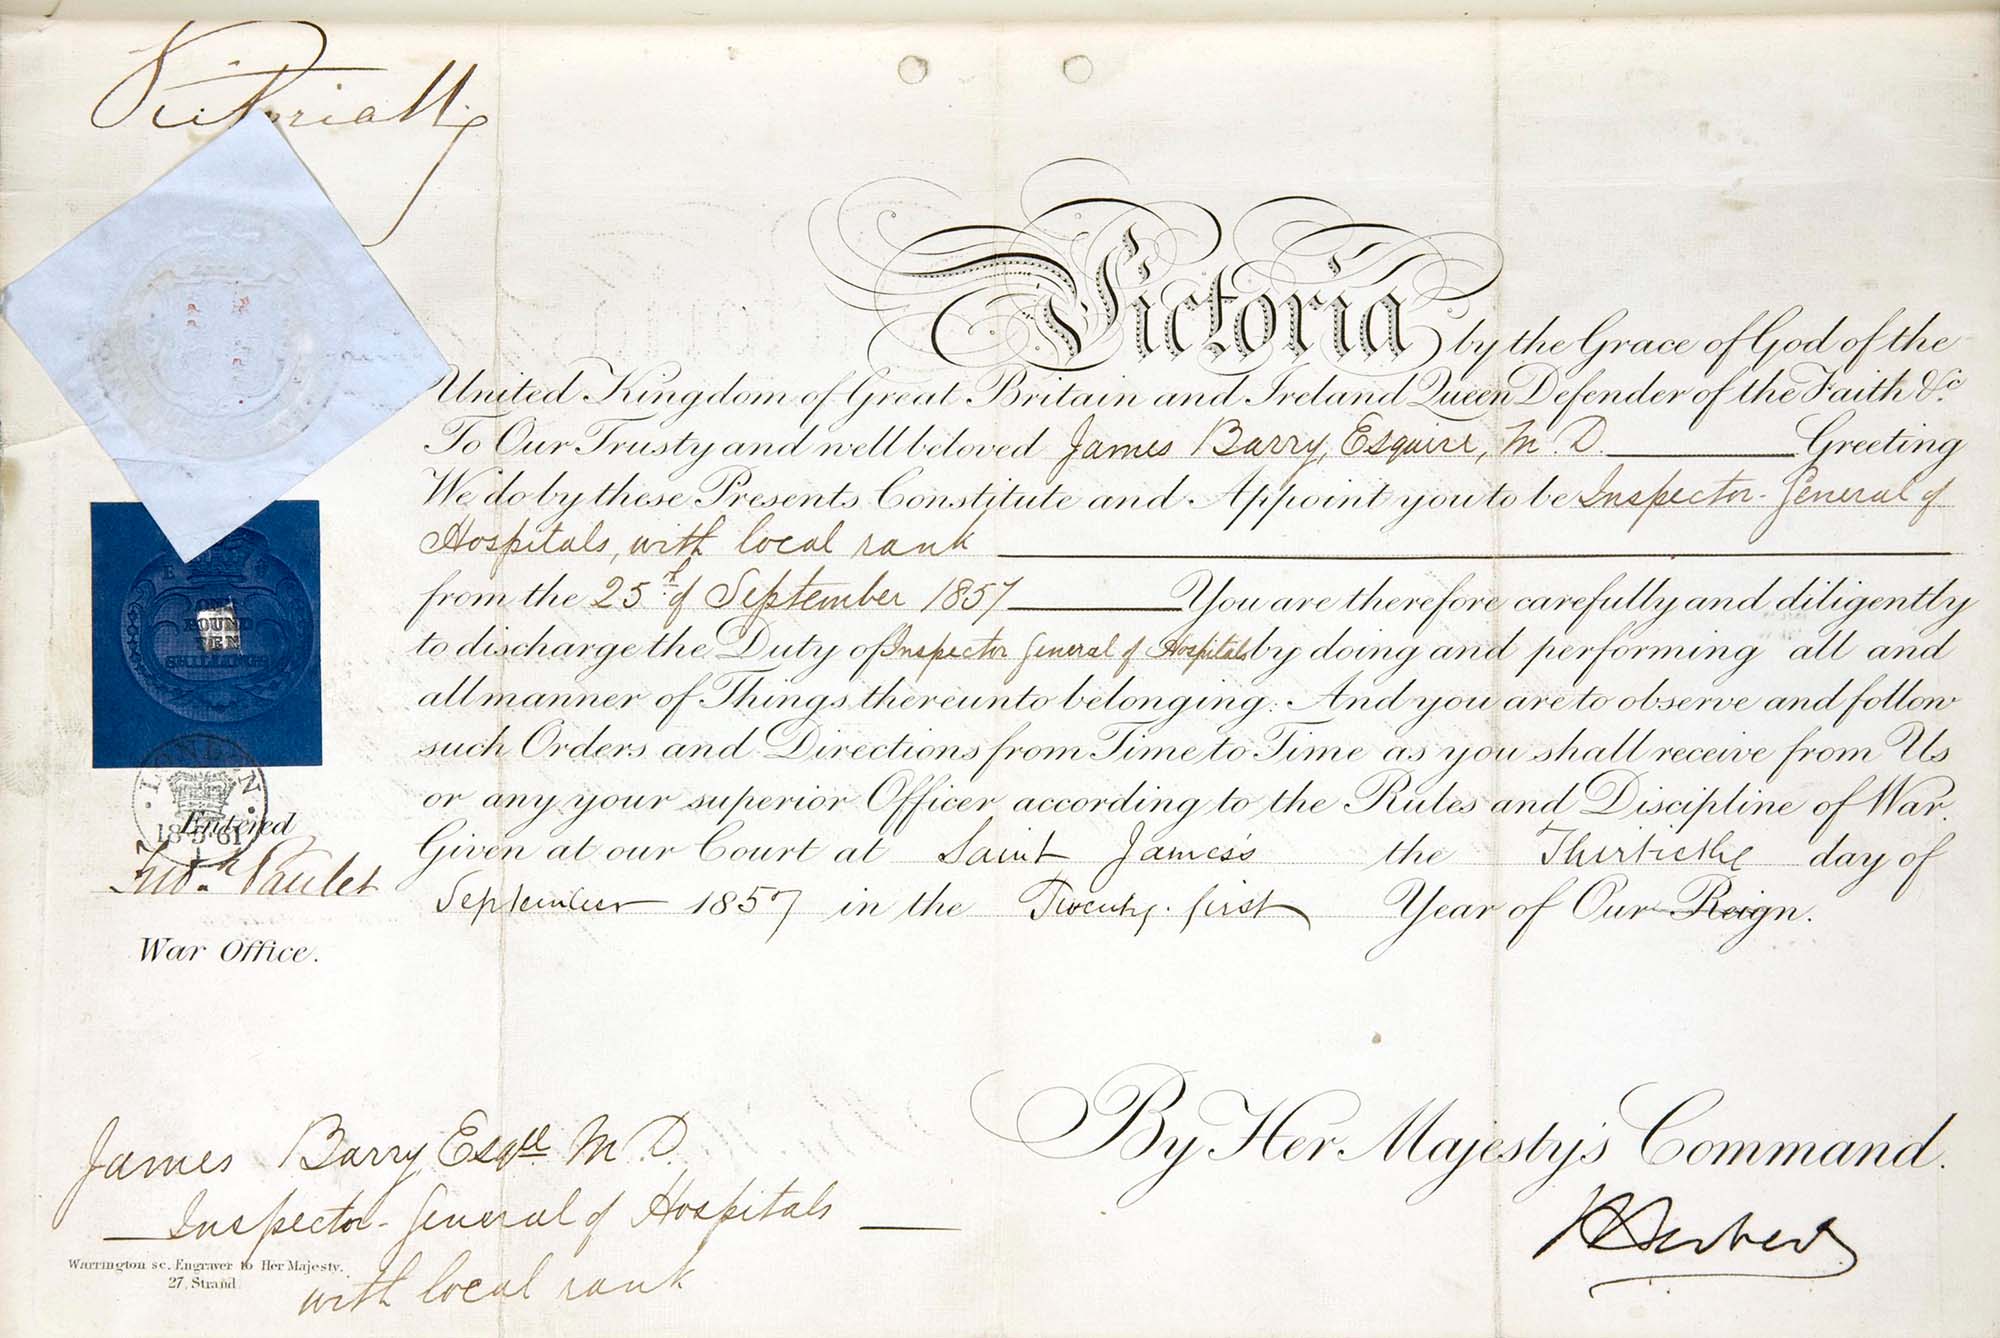 Victoria R
Victoria by the Grace of God of the
United Kingdom of Great Britain and Ireland Queen Defender of the Faith &c.
To Our Trusty and well beloved James Barry, Esquire, M.D. Greeting
We do by these Presents Constitute and Appoint you to be Inspector-General of
Hospitals, with local rank
from the 25th of September 1857 You are therefore carefully and diligently
to discharge the Duty of Inspector General of Hospitals by doing and performing all and
all manner of Things thereunto belonging: And you are to observe and follow
such Orders and Directions from Time to Time as you shall receive from Us
or any your superior Officer according to the Rules and Discipline of War.
Given at our Court at Saint James's the Thirtieth day of
September 1857 in the Twenty-first Year of Our Reign.
ONE
POUND
TEN
SHILLINGS
LONDON
18·5·61
Entered
Paulet
War Office.
By Her Majesty's Command.
James Barry Esqre M.D.
Inspector-General of Hospitals
with local rank
Warrington sc. Engraver to Her Majesty.
27, Strand